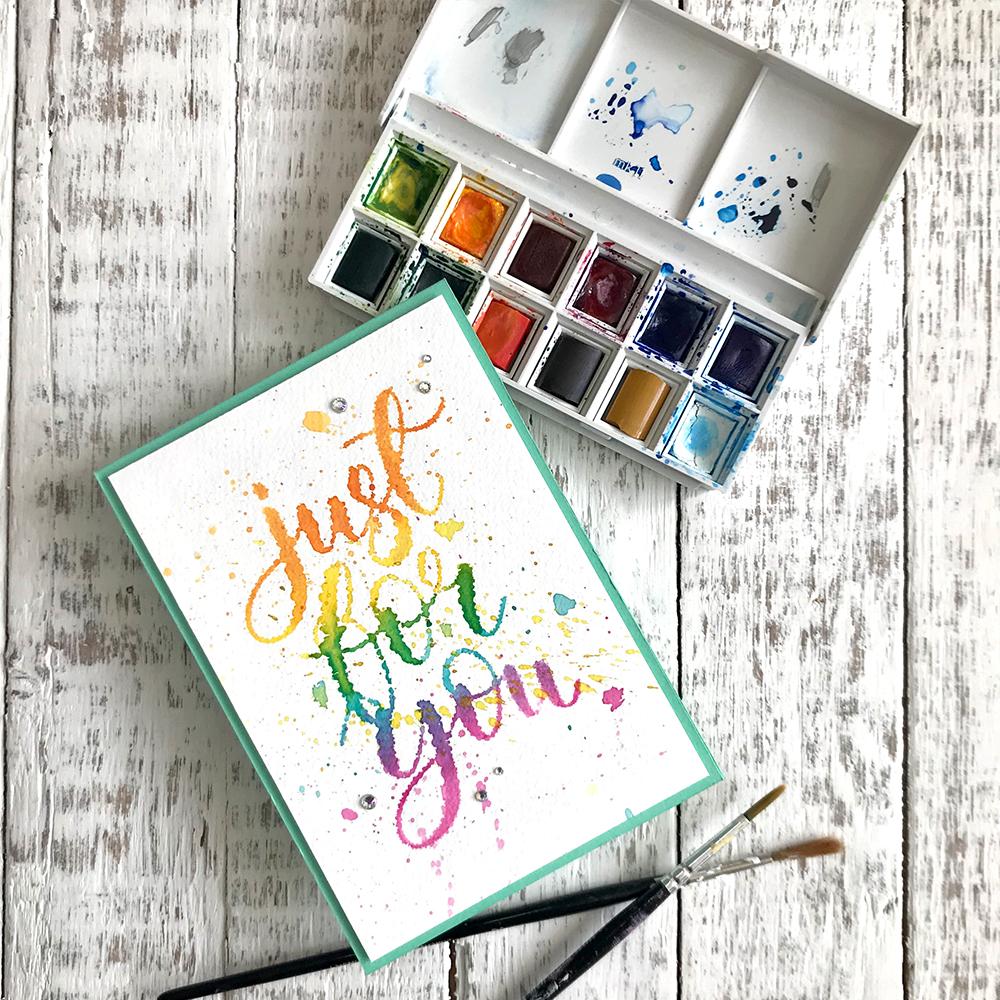 just
for
you